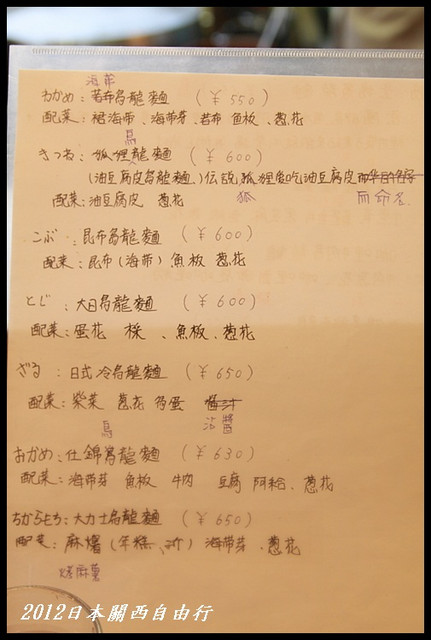 海帶
わかめ：若布烏龍麵 (￥550)
配菜：裙海帶、海帶芽、若布 魚板、蔥花
烏
きつね：狐狸龍麵 (￥600)
(油豆腐皮烏龍麵)伝説,狐狸愛吃油豆腐皮
狐 而命名.
配菜：油豆腐皮 蔥花
こぶ：昆布烏龍麵 (￥600)
配菜：昆布(海帶)魚板 蔥花
とじ：大日烏龍麵 (￥600)
配菜：蛋花 、魚板、蔥花
ざる：日式冷烏龍麵 (￥650)
配菜：紫菜 蔥花 鳥蛋 醬汁
烏 沾醬
おかめ：什錦烏龍麵 (￥630)
配菜：海帶芽 魚板 牛肉 豆腐 阿給、蔥花
ちからもち：大力士烏龍麵 (￥650)
配菜：麻糬(年糕、) 海帶芽、蔥花
烤麻薯
2012日本關西自由行